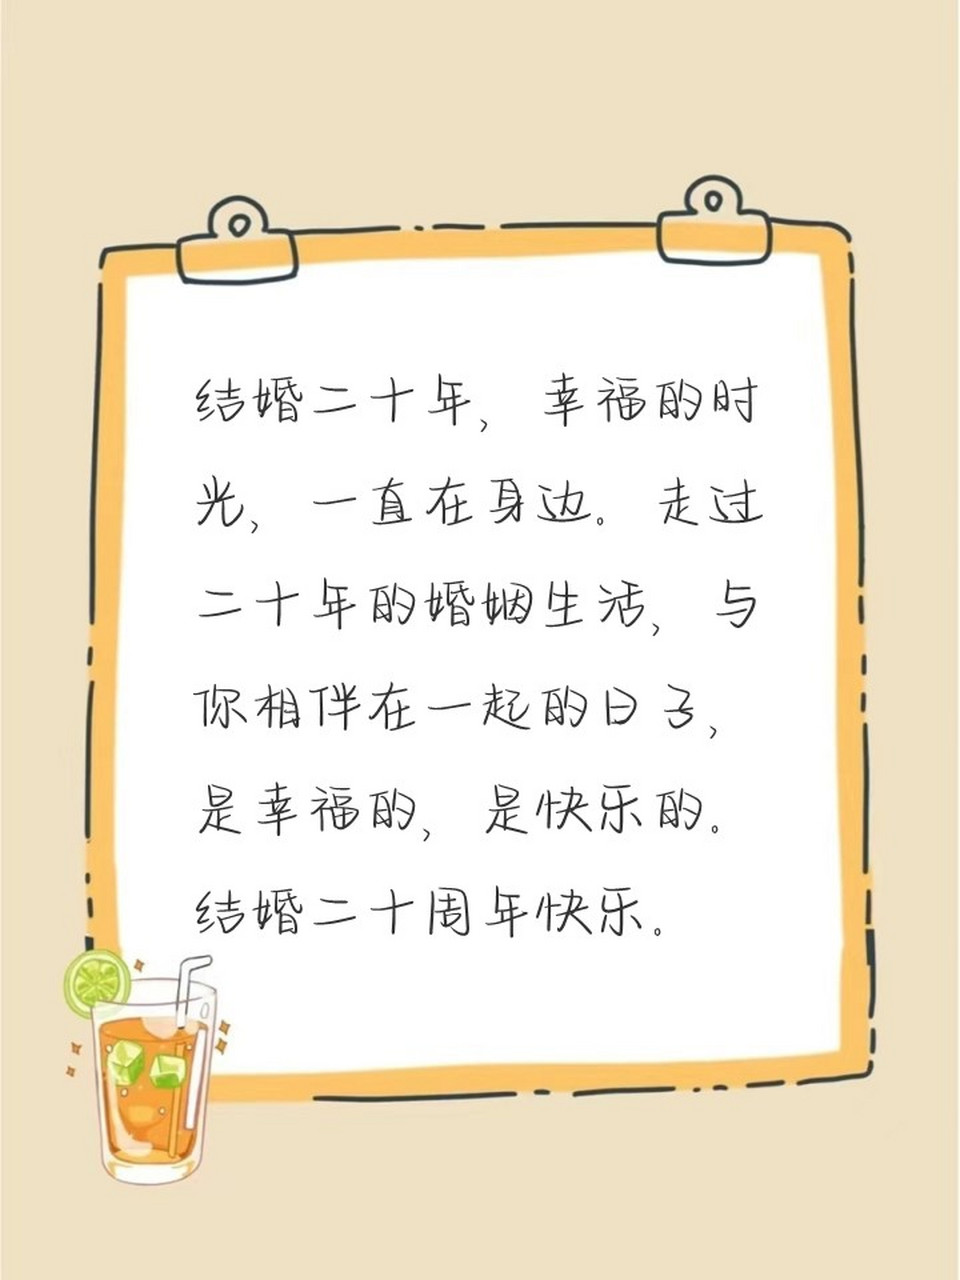 结婚二十年，幸福的时
光，一直在身边。走过
二十年的婚姻生活，与
你相伴在一起的日子，
是幸福的，是快乐的。
结婚二十周年快乐。